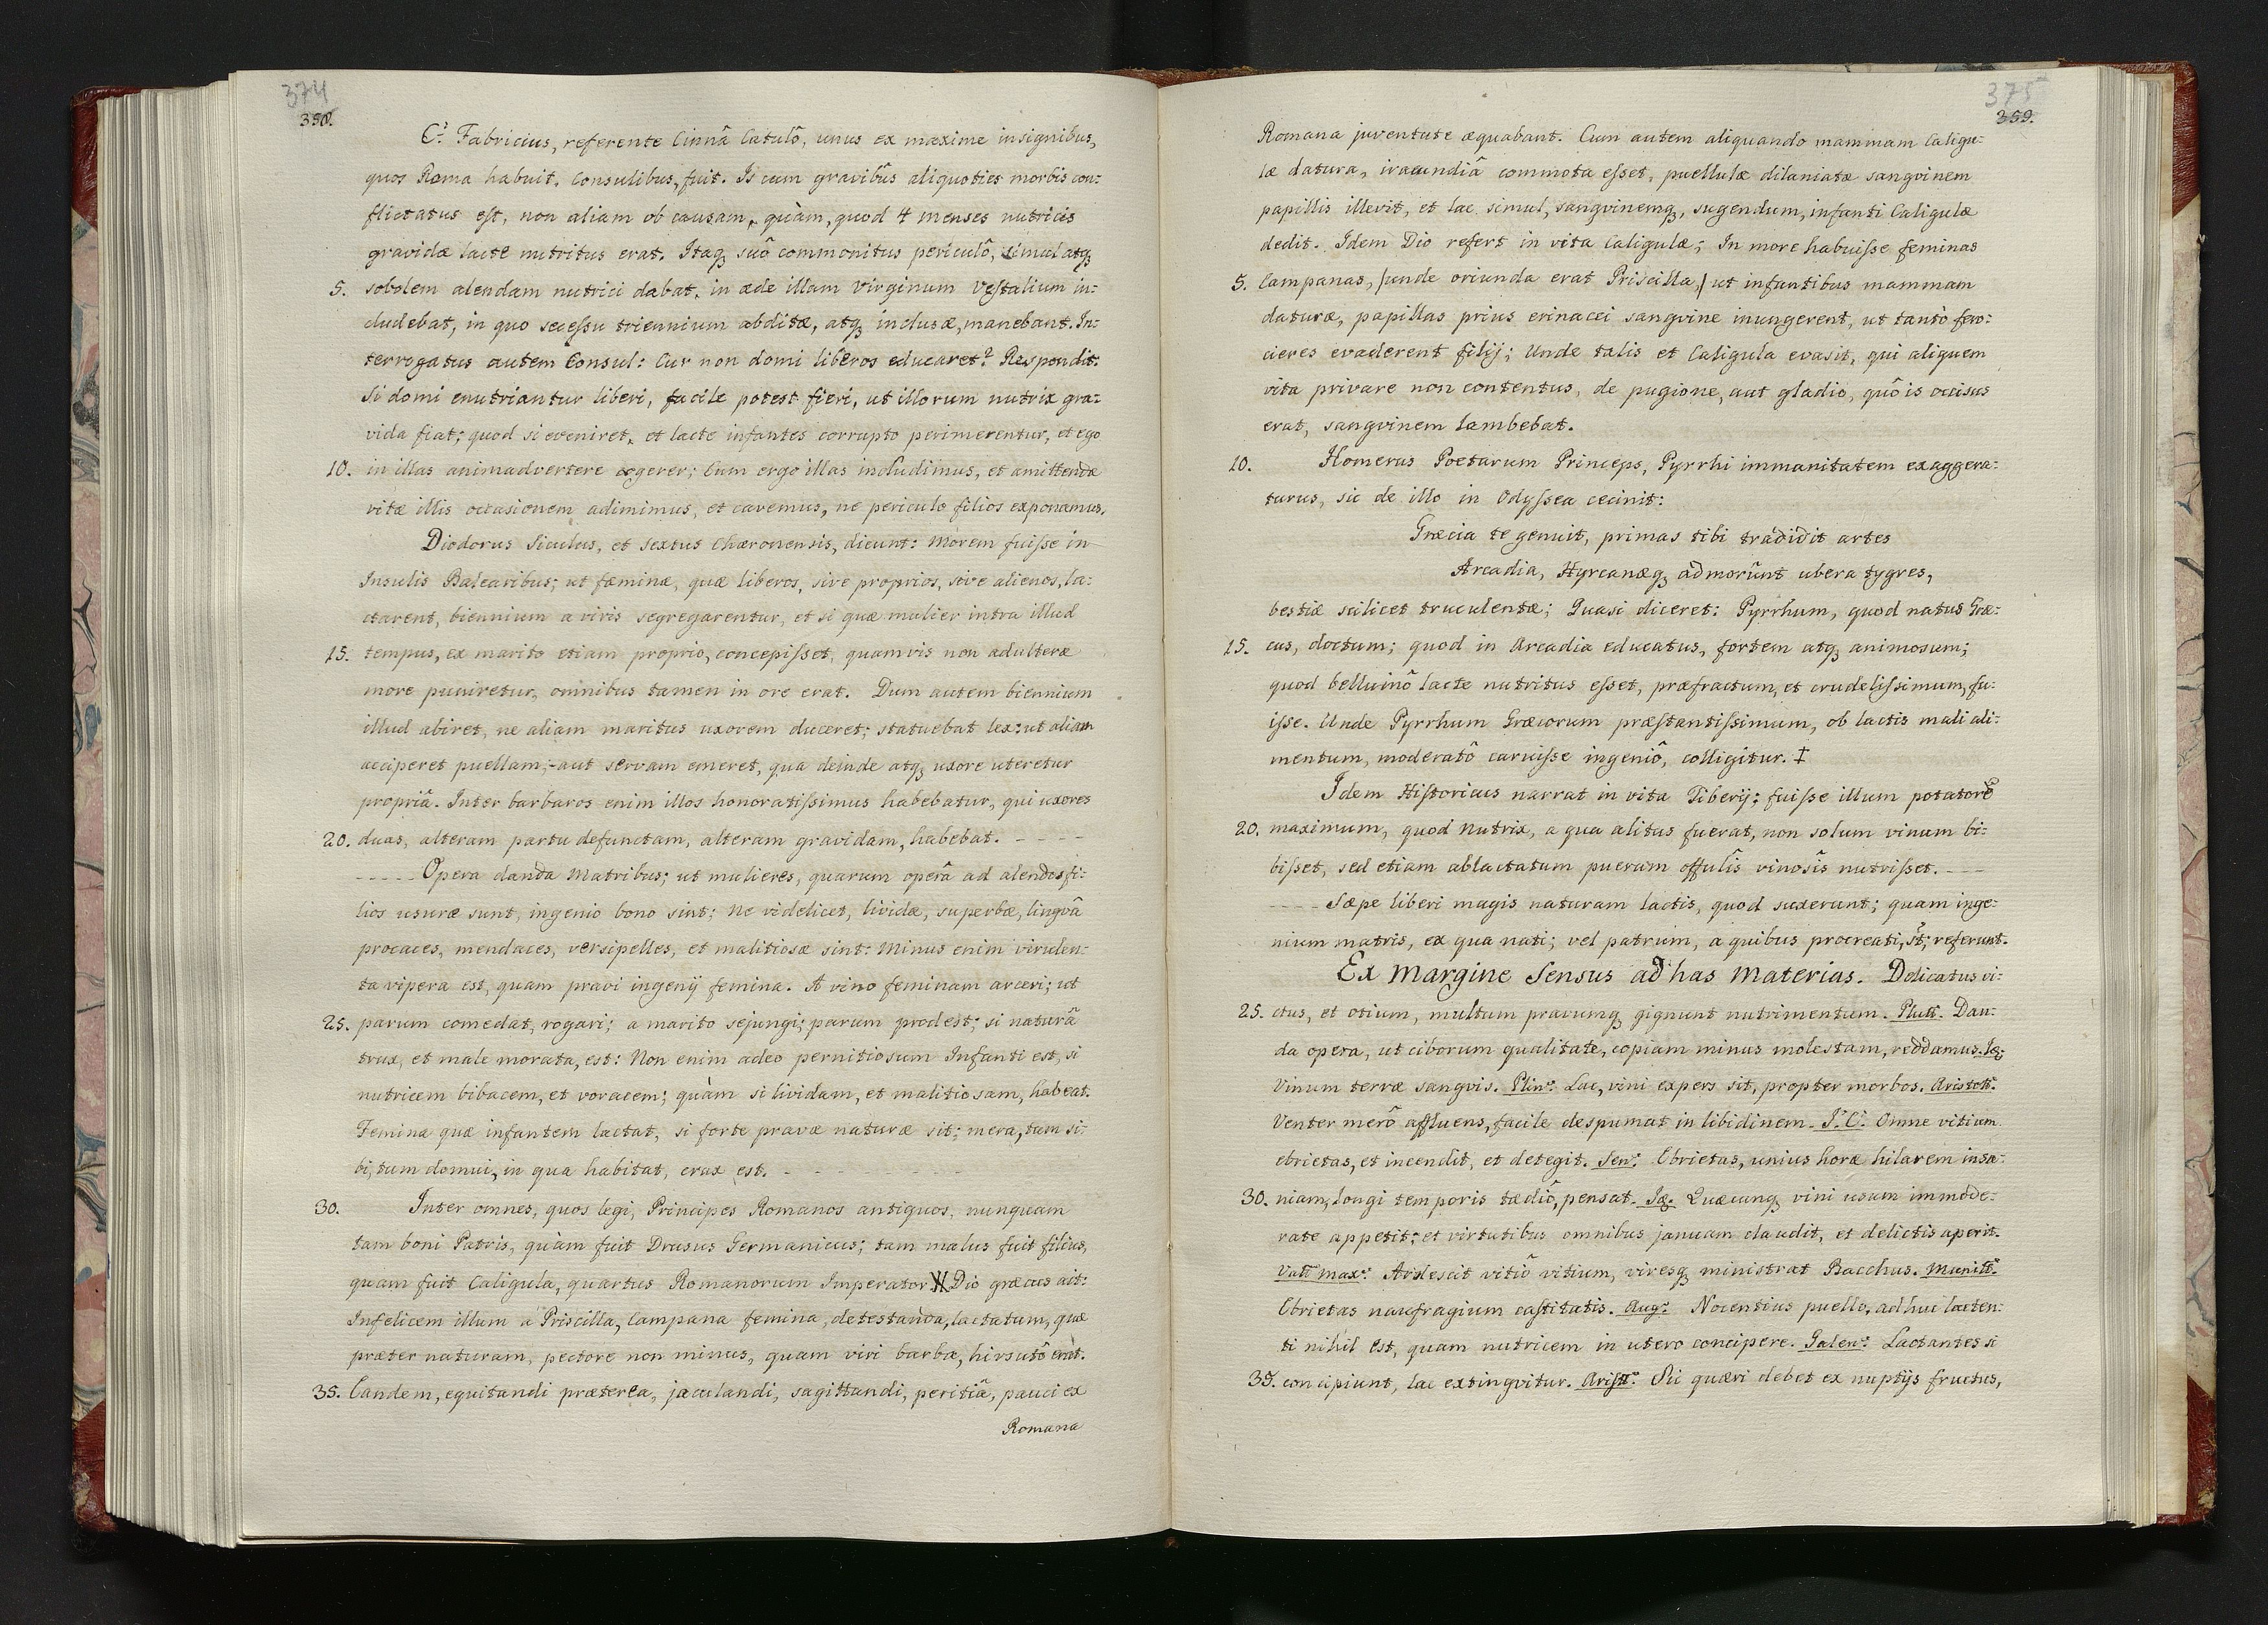 374
358.
C.ˢ Fabricius, referente Cinnâ Catulô, unus ex maxime insignibus,
quos Roma habuit, Consulibus, fuit. Is cum gravibûs aliquoties morbis con:
flictatus est, non aliam ob causam, quàm, quod 4 menses nutricis
gravidæ lacte nutritus erat. Itaq₃ suô commonitus periculô, simul atq₃
5. sobolem alendam nutrici dabat, in æde illam Virginum Vestalium in:
cludebat, in quo secessu triennium abditæ, atq₃ inclusæ, manebant. In:
terrogatus autem Consul: Cur non domi liberos educaret? Respondit:
Si domi enutriantur liberi, facile potest fieri, ut illorum nutrix gra:
vida fiat; quod si eveniret, et lacte infantes corrupto perimerentur, et ego
10. in illas animadvertere cogerer; Cum ergo illas includimus, et amittendæ
vitæ illis occasionem adimimus, et cavemus, ne periculo filios exponamus.
Diodorus Siculus, et Sextus Chæronensis, dicunt: Morem fuisse in
Insulis Balearibus; ut fæminæ, quæ liberos, sive proprios, sive alienos, la:
ctarent, biennium a viris segregarentur, et si quæ mulier intra illud
15. tempus, ex marito etiam proprio, concepisset, quamvis non adulteræ
more puniretur, omnibus tamen in ore erat. Dum autem biennium
illud abiret, ne aliam maritus uxorem duceret; statuebat lex: ut aliam
acciperet puellam; aut servam emeret, qua deinde atq₃ uxore uteretur
propriâ. Inter barbaros enim illos honoratissimus habebatur, qui uxores
20. duas, alteram partu defunctam, alteram gravidam, habebat. - - - -
- - - - - Opera danda Matribus; ut mulieres, quarum operâ ad alendos fi:
lios usuræ sunt, ingenio bono sint; Ne videlicet, lividæ, superbæ, lingvâ
procaces, mendaces, versipelles, et malitiosæ sint: Minus enim virulen:
ta vipera est, quam pravi ingenij femina. A vino feminam arceri; ut
25. parum comedat, rogari; a marito sejungi; parum prodest; si naturâ
trux, et male morata, est: Non enim adeo pernitiosum Infanti est, si
nutricem bibacem, et voracem; quàm si lividam, et malitiosam, habeat.
Femina quæ infantem lactat, si forte pravæ naturæ sit; mera, tum si:
bi, tum domui, in qua habitat, crux est. - - - - - - - -
30. Inter omnes, quos legi, Principes Romanos antiquos, nunquam
tam boni Patris, quàm fuit Drusus Germanicus; tam malus fuit filius,
quam fuit Caligula, quartus Romanorum Imperator. Dio græcus ait:
Infelicem illum a Priscilla, Campana femina, detestanda, lactatum, quæ
præter naturam, pectore non minus, quam viri barba, hirsutô erat.
35. Eandem, equitandi præterea, jaculandi, sagittandi, peritiâ, pauci ex
Romana
375
359.
Romana juventute æquabant. Cum autem aliquando mammam Caligu:
læ datura, iracundiâ commota esset, puellulæ dilaniatæ sangvinem
papillis illevit, et lac simul, sangvinemq₃, sugendum, infanti Caligulæ
dedit. Idem Dio refert in vita Caligulæ; In more habuisse feminas
5. Campanas, /unde oriunda erat Priscilla,/ ut infantibus mammam
daturæ, papillas prius erinacei sangvine inungerent, ut tantò fero:
cieres evaderent filij; Unde talis et Caligula evasit, qui aliquem
vita privare non contentus, de pugione, aut gladio, quô is occisus
erat, sangvinem lambebat.
10. Homerus Poetarum Princeps, Pyrrhi immanitatem exaggera:
turus, sic de illo in Odyssea cecinit:
Græcia te genuit, primas tibi tradidit artes
Arcadia, Hyrcanæq₃ admorûnt ubera tygres,
bestiæ scilicet truculentæ; Quasi diceret: Pyrrhum, quod natus Græ:
15. cus, doctum; quod in Arcadia educatus, fortem atq₃ animosum;
quod belluinô lacte nutritus esset, præfractum, et crudelissimum, fu:
isse. Unde Pyrrhum Græcorum præstantissimum, ob lactis mali ali:
mentum, moderatô caruisse ingeniô, colligitur. ‡
Idem Historicus narrat in vita Tiberij; fuisse illum potatorē
20. maximum, quod Nutrix, a qua alitus fuerat, non solum vinum bi:
bisset, sed etiam ablactatum puerum offulîs vinosîs nutrisset. - - -
- - - - Sæpe liberi magis naturam lactis, quod suxerunt; quam inge:
nium matris, ex qua nati; vel patrum, a quibus procreati, st; referunt.
Ex Margine Sensus ad has Materias. Delicatus vi:
25. ctus, et otium, multum pravumq₃ gignunt nutrimentum. Plutt. Dan:
da opera, ut ciborum qualitate, copiam minus molestam, reddamus. Iꝗ:
Vinum terræ sangvis. Plinˢ. Lac, vini expers sit, propter morbos. Aristotˢ.
Venter merô affluens, facile despumat in libidinem. Iˢ. Cˢ. Omne vitium
ebrietas, et incendit, et detegit. Senˢ. Ebrietas, unius horæ hilarem insa:
30. niam, longi temporis tædiô, pensat. Iꝗ. Quæcunq₃ vini usum immode:
rate appetit; et virtutibus omnibus januam claudit, et delictis aperit.
Vall Maxˢ. Ardescit vitiô vitium, viresq₃ ministrat Bacchus.
Ebrietas naufragium castitatis. Augˢ. Nocentius puello, adhuc lacten:
ti nihil est, quam nutricem in utero concipere. Galenˢ. Lactantes si
35. concipiunt, lac extingvitur. Aristˢ. Sic quæri debet ex nuptijs fructus,